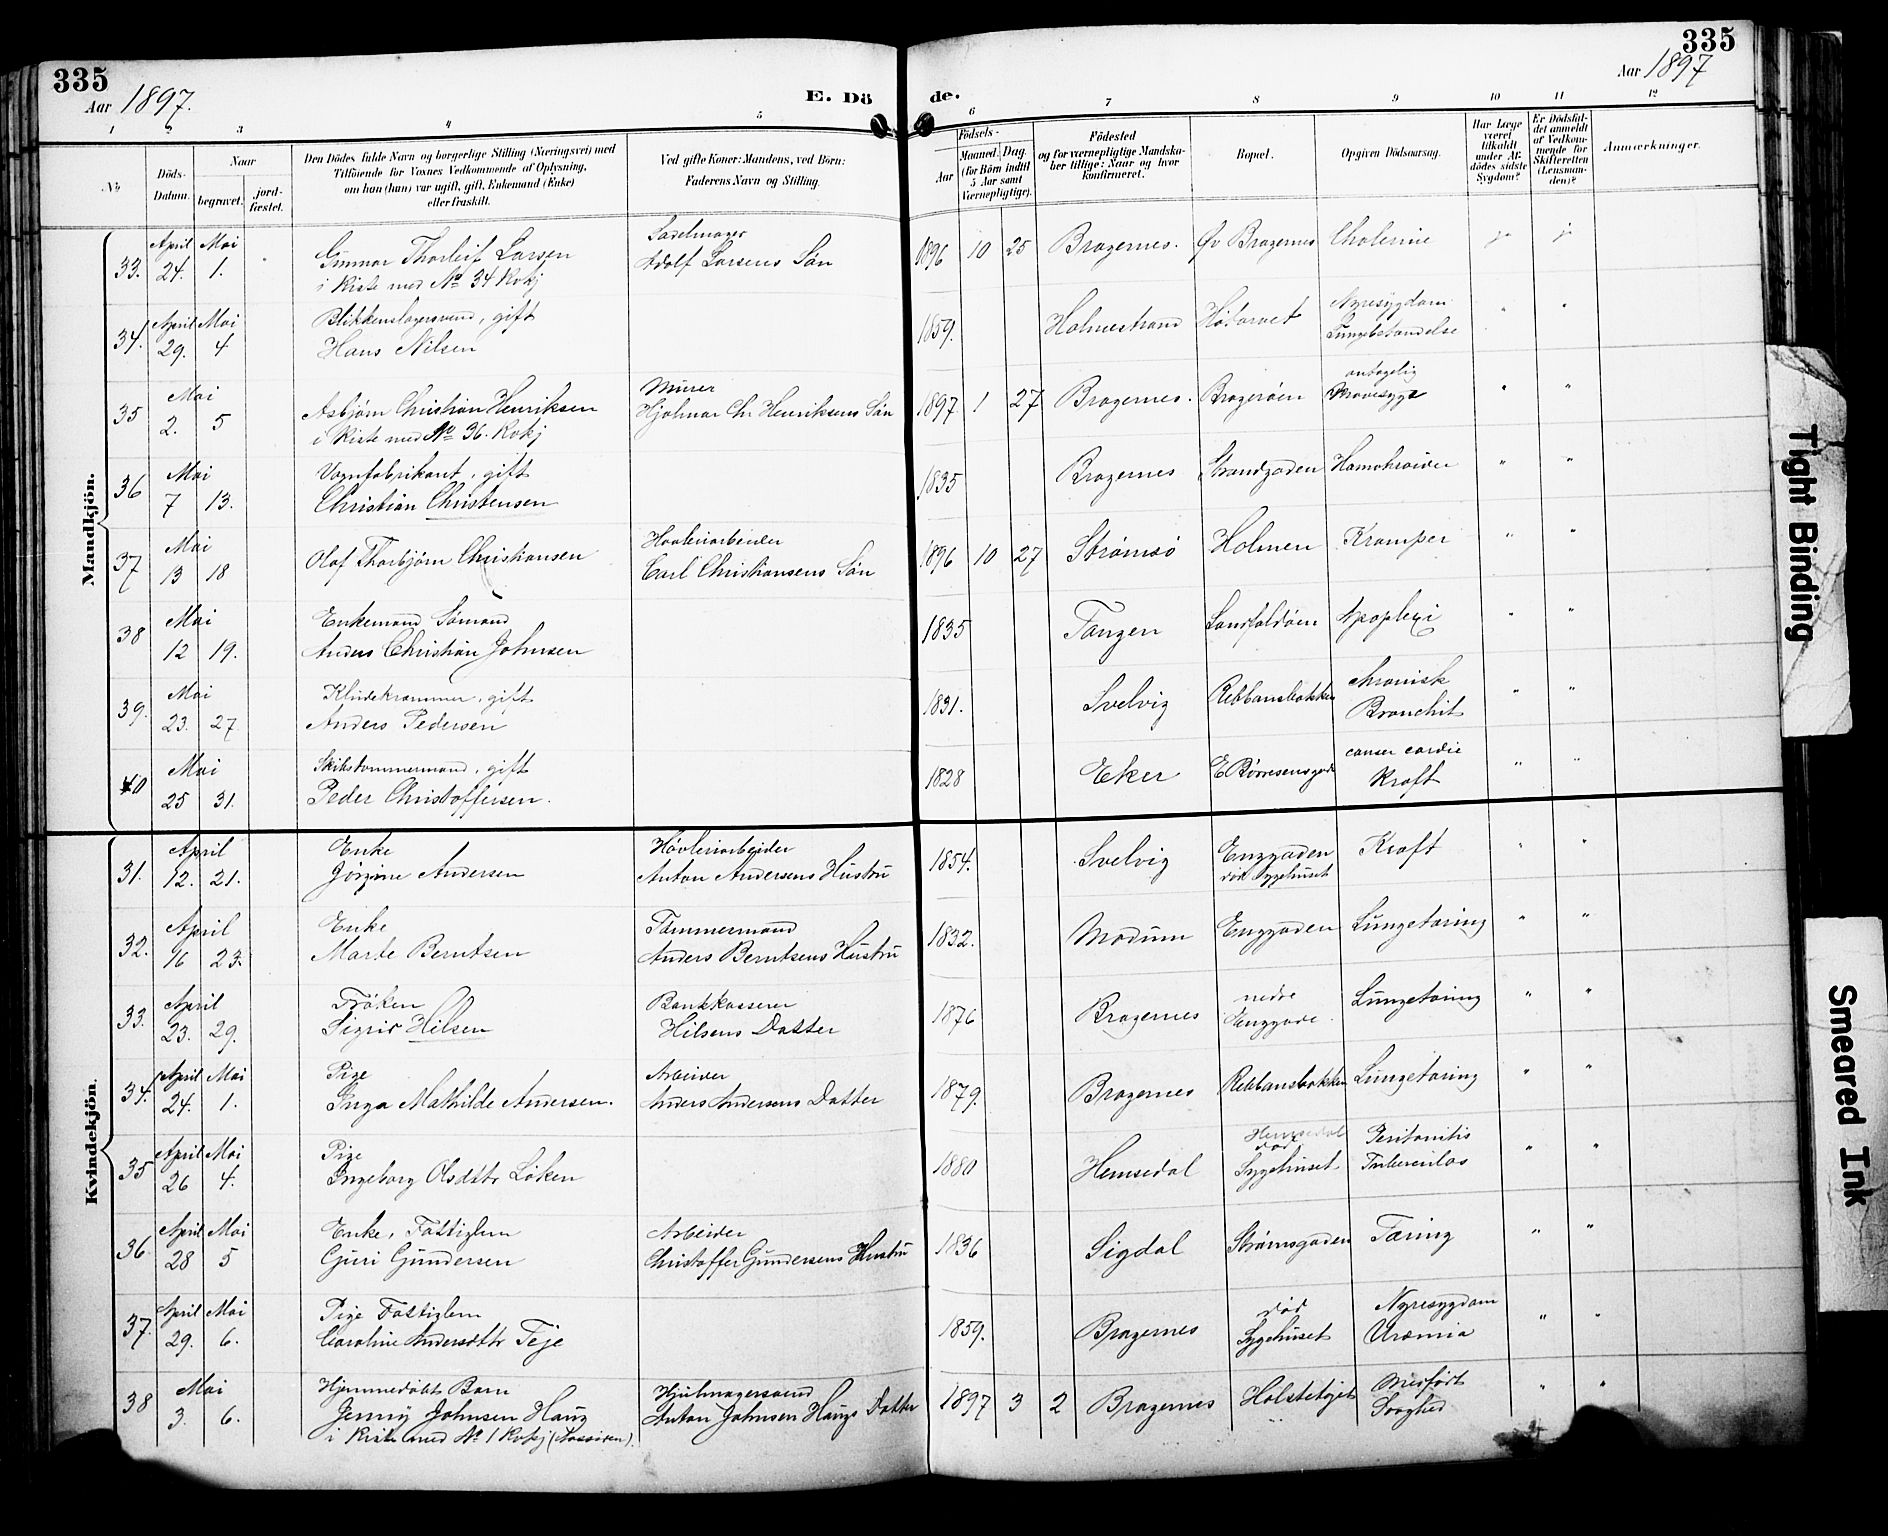 335
Aar 1897.
E. Dö de.
335
Aar 1897
1 2 3 4 5 6 7 8 9 10 11 12
No
Döds-Datum.
Naar
begravet.
jord-fæstet.
Den Dödes fulde Navn og borgerlige Stilling (Næringsvei) med
Tilföiende for Voxnes Vedkommende af Oplysning,
om han (hun) var ugift, gift, Enkemand (Enke)
eller fraskilt.
Ved gifte Koner: Mandens, ved Börn:
Faderens Navn og Stilling.
Födsels-
Aar
Maaned. Dag.
(for Börn indtil
5 Aar samt
Værnepligtige).
Födested
og for værnepligtige Mandska-
ber tillige: Naar og hvor
konfirmeret.
Bopæl.
Opgiven Dödsaarsag.
Har Læge
været
tilkaldt
under Af-
dödes sidste
Sygdom?
Er Dödsfal-
det anmeldt
af Vedkom-
mende for
Skifteretten
(Lensman-
den)?
Anmærkninger.
Mandkjön.
33. April 24. Mai 1. Gunnar Thorleif Larsen Sadelmager Adolf Larsens Søn 1896 10 25 Bragernes. Øv Bragernes Cholerine ja ja
i Kiste med No 34 Kvkj
34. April 29. Mai 4 Blikkenslagersvend, gift 1859. Holmestrand Høtorvet Nyresygdom
Hans Nilsen Lungebetændelse " "
35 Mai 2. 5 Asbjørn Christian Henriksen Murer Hjalmar Chr Henriksens Søn 1897 1 27 Bragernes. Bragerøen antagelig " "
i Kiste med No 36. Kvkj
36 Mai 7 13. Vognfabrikant, gift 1835 Bragernes Strandgaden " "
Christian Christensen
37 Mai 13 18 Olaf Thorbjørn Christiansen Høvleriarbeider Carl Christiansens Søn 1896 10 27 Strømsø Holmen Kramper " "
38 Mai 12 19. Enkemand Sømand 1835 Tangen Landfaldøen Apoplexi " "
Anders Christian Johnsen
39. Mai 23. 27 Kludekræmmer, gift 1831. Svelvig Rebbansbakken chronisk
Anders Pedersen Bronchit " "
40 Mai 25 31. Skibstømmermand, gift 1828 Eker E Børresensgade canser cardie
Peder Christoffersen. Kræft " "
Kvindekjön.
31. April 12. 21. Enke Høvleriarbeider 1854. Svelvig Enggaden Kræft " "
Jørgine Andersen Anton Andersens Hustru død Sygehuset
32. April 16 23. Enke Tømmermand 1832. Modum Enggaden Lungetæring " "
Marte Berntsen Anders Berntsens Hustru
33. April 23. 29. Frøken Bankkasserer 1876 Bragernes nedre Lungetæring " "
Sigrid Hilsen Hilsens Datter Enggade.
34. April 24. Mai 1. Pige Arbeider 1879. Bragernes Rebbansbakken Lungetæring " "
Inga Mathilde Andersen. Anders Andersens Datter
35 April 26 Mai 4. Pige 1880 Hemsedal Hemsedal død Peritonitis " "
Ingeborg Olsdttr Løken Sygehuset Tuberculos
36 April 28 Mai 5 Enke, Fattiglem Arbeider 1836 Sigdal Strømsgaden Tæring " "
Guri Gundersen Christoffer Gundersens Hustru
37. April 29. Mai 6. Pige Fattiglem 1859. Bragernes død Nyresygdom
Caroline Andersdttr Teje Sygehuset Uræmia " "
38 Mai 3. 6. Hjemmedøbt Barn Hjulmagersvend 1897 3 2 Bragernes Medfødt
Jenny Johnsen Haug Anton Johnsen Haugs Datter Svaghed " "
i Kiste med No 1 Kvkj
Tight Binding
Smeared Ink